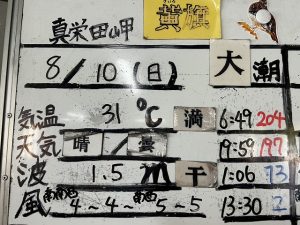 真栄田岬
黄旗
8/10(日)
大潮
気温 31℃ 満 6:49 204
天気 晴/曇 19:59 197
波 1.5m 干 1:06 73
風 南南西 4~4~南西 5~5 13:30 2